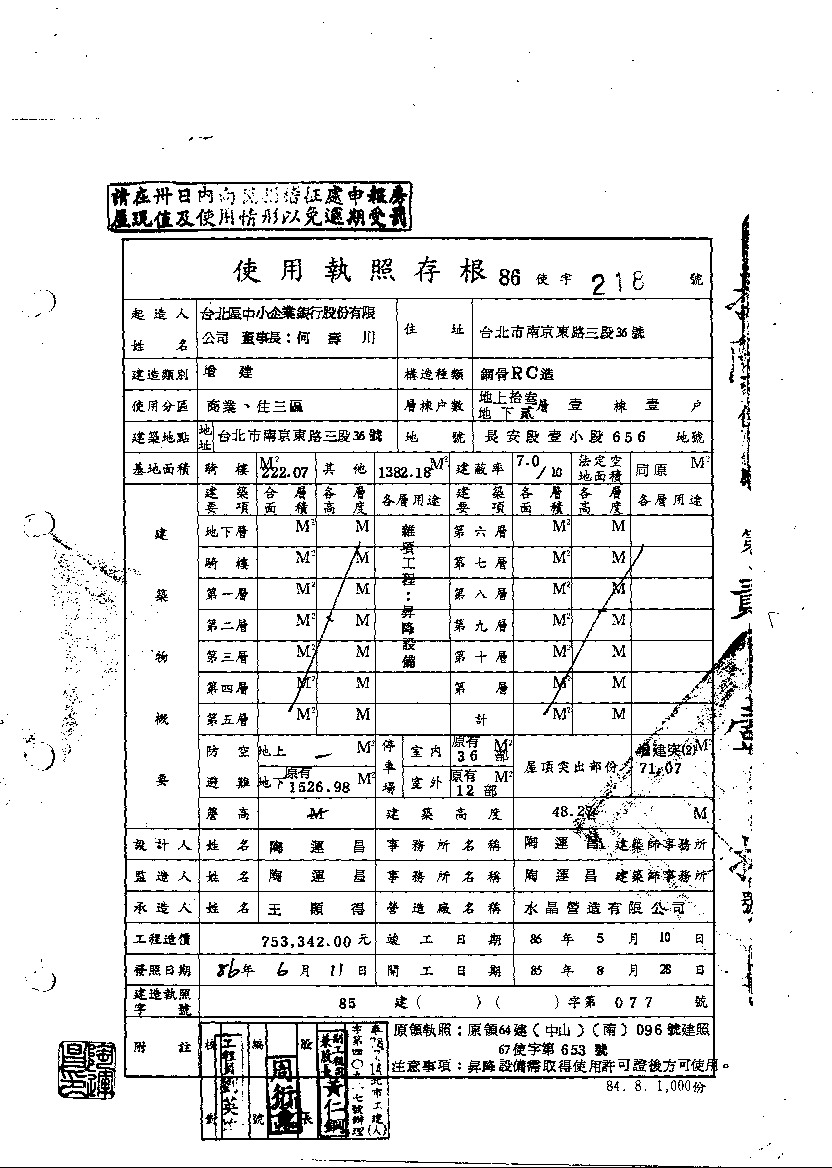 請在卅日內向 稽征處申報房
屋現值及使用情形以免逾期受罰
使用執照存根 86 使字 218 號
起造人姓名 台北區中小企業銀行股份有限公司 董事長：何壽川 住址 台北市南京東路三段36號
建造類別 增建 構造種類 鋼骨RC造
使用分區 商業、住三區 層棟户數 地上拾叁地下貳層 壹棟壹户
建築地點 地址 台北市南京東路三段36號 地號 長安段壹小段656 地號
基地面積 騎樓 M² 222.07 其他 1382.18 M² 建蔽率 7.0/10 法定空地面積 同原 M²
建築物概要
建築要項 各層面積 各層高度 各層用途 建築要項 各層面積 各層高度 各層用途
地下層 M² M 雜項工程：昇降設備 第六層 M² M
騎樓 M² M 第七層 M² M
第一層 M² M 第八層 M² M
第二層 M² M 第九層 M² M
第三層 M² M 第十層 M² M
第四層 M² M 第 層 M² M
第五層 M² M 計 M² M
防空避難 地上 — M² 停車場 室內 原有 36 部 M² 屋頂突出部份 突(2) M² 71.07
地下 原有 1526.98 M² 室外 原有 12 部 M²
簷高 M 建築高度 48.2 M
設計人 姓名 陶運昌 事務所名稱 陶運昌 建築師事務所
監造人 姓名 陶運昌 事務所名稱 陶運昌 建築師事務所
承造人 姓名 王顯得 營造廠名稱 水晶營造有限公司
工程造價 753,342.00 元 竣工日期 86 年 5 月 10 日
發照日期 86 年 6 月 11 日 開工日期 85 年 8 月 28 日
建造執照字號 85 建（ ）（ ）字第 077 號
附註 原領執照：原領64建（中山）（南）096號建照
67使字第653號
注意事項：昇降設備需取得使用許可證後方可使用。
黃仁鋼
84. 8. 1,000份
陶運昌